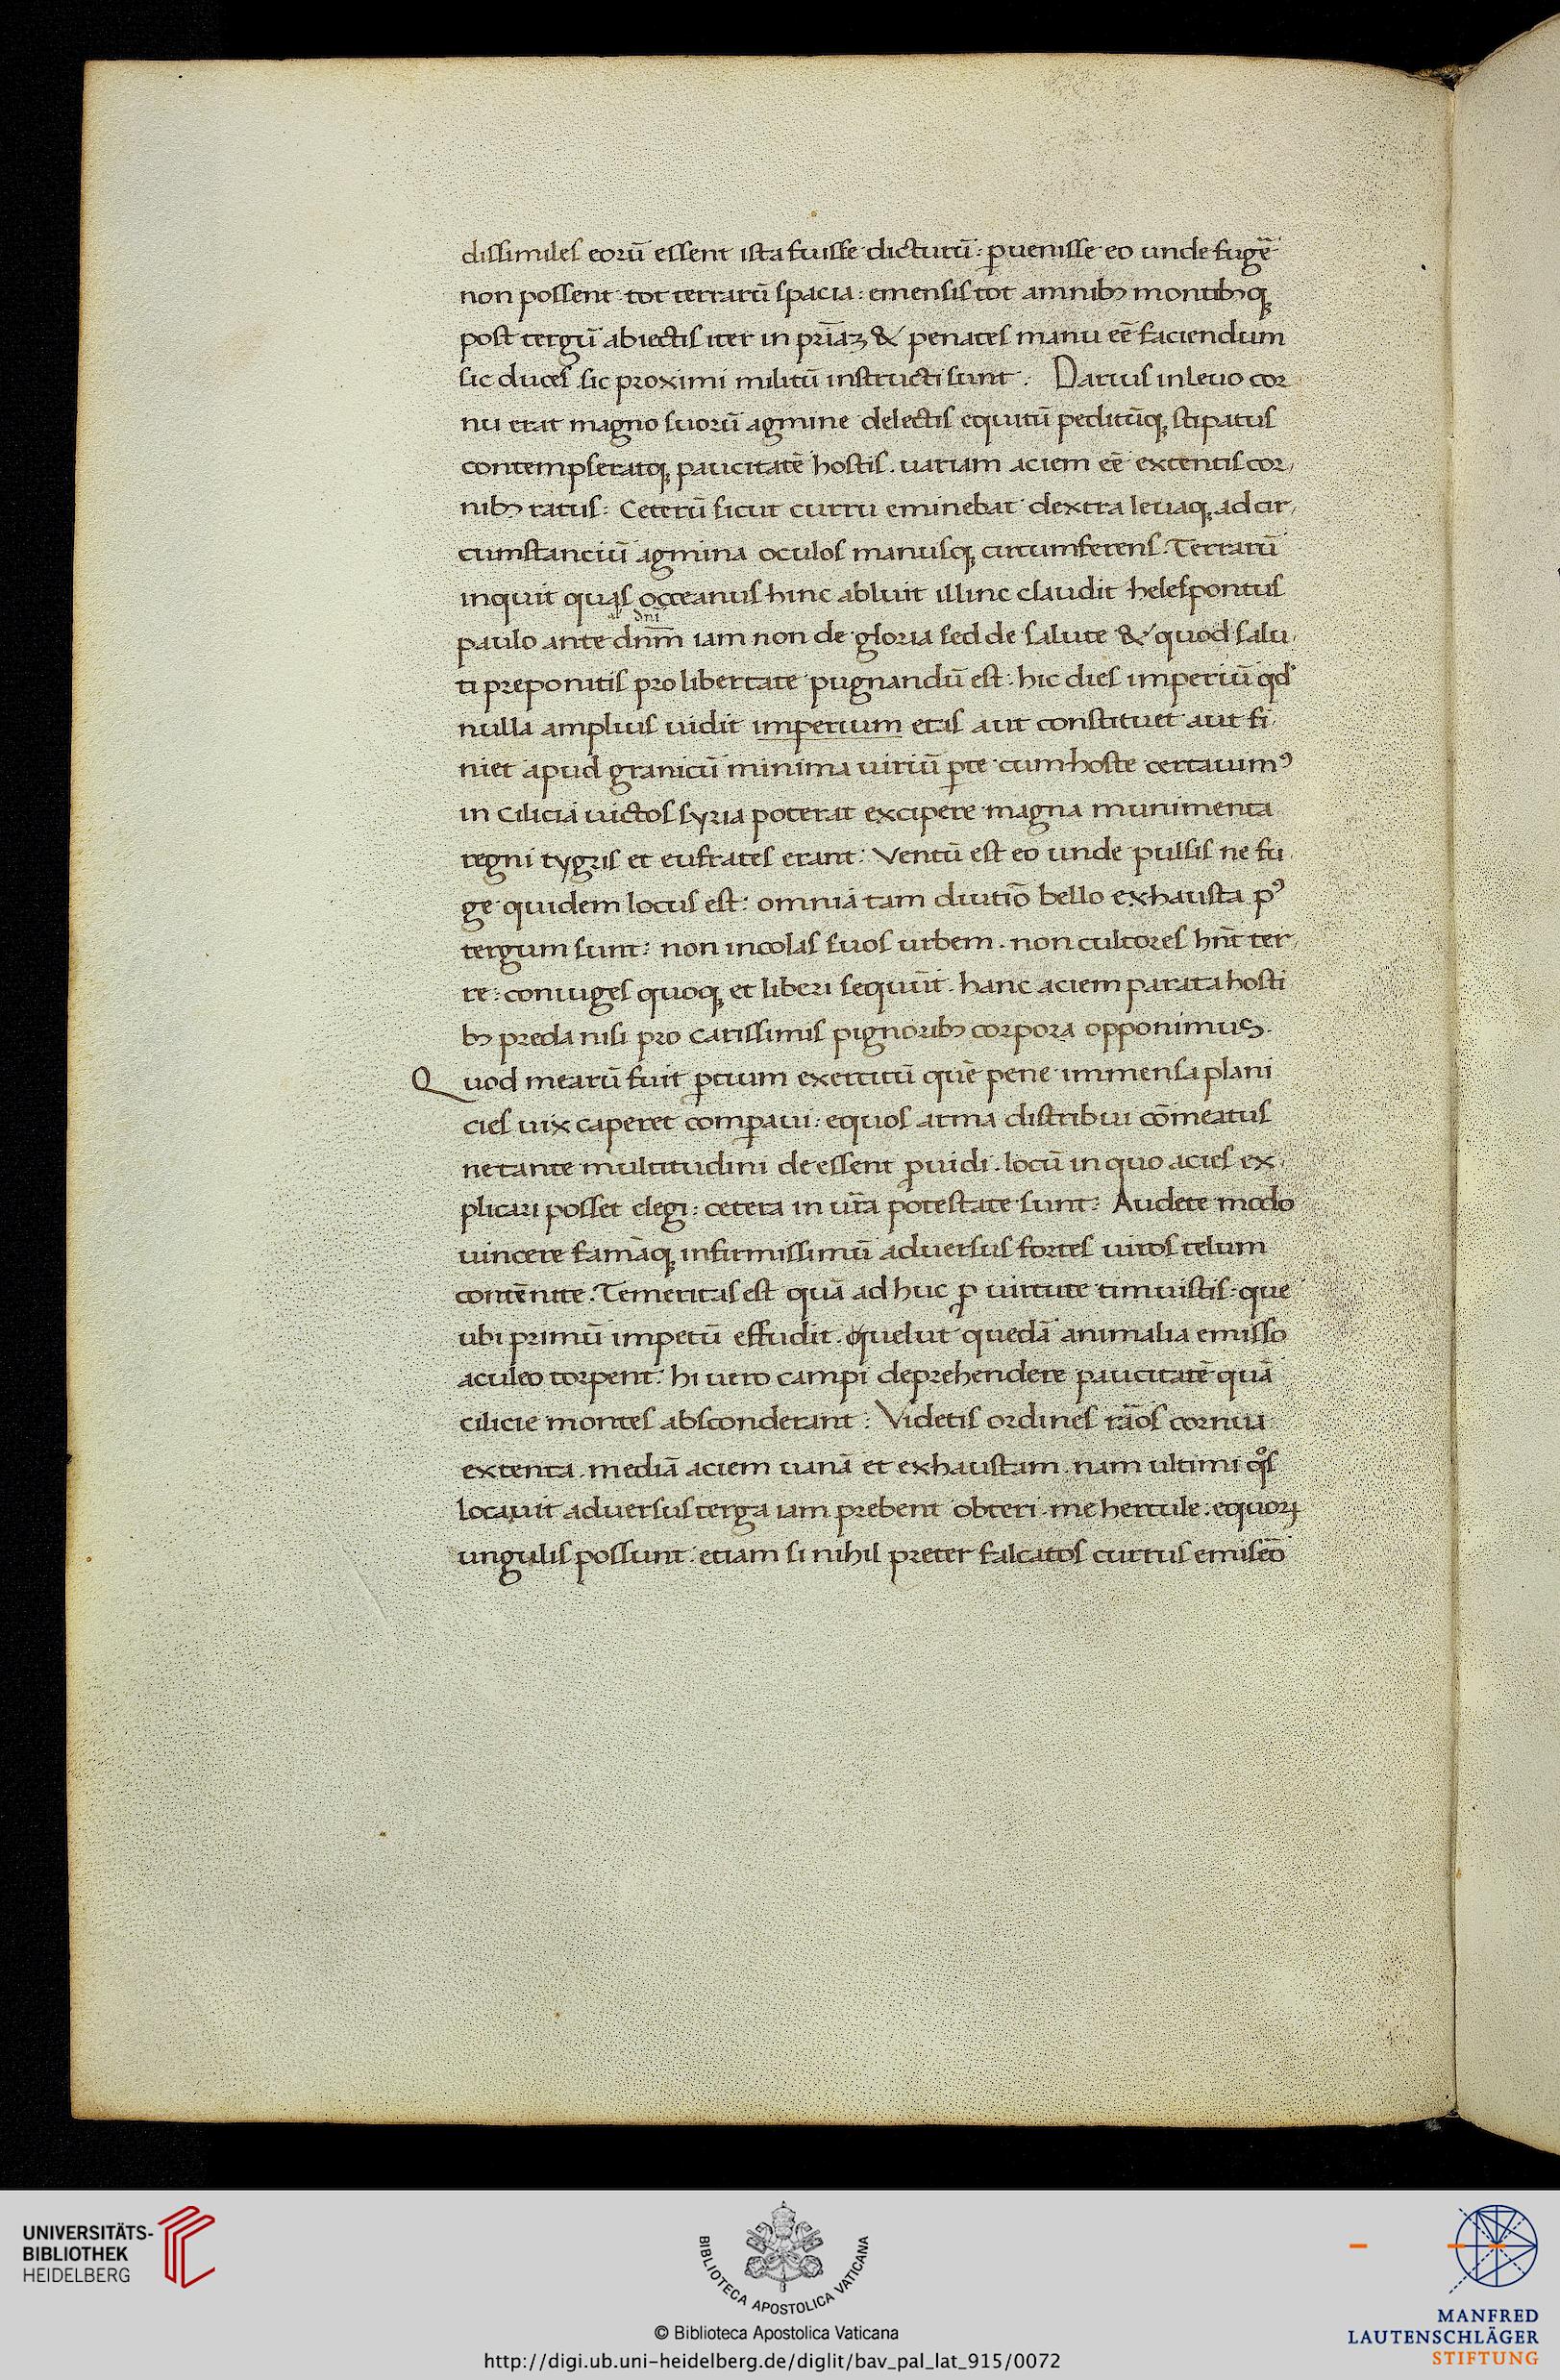 dissimiles eorū essent ista fuisse dicturū: ꝑuenisse eo unde fugē
non possent tot terrarū spacia: emensis tot amnibꝫ montibꝫqꝫ
post tergū abiectis iter in pr̄iaꝫ & penates manu eē faciendum
sic duces sic proximi militū instructi sunt. Darius in leuo cor
nu erat magno suorū agmine delectis equitū peditūqꝫ stipatus
contempseratqꝫ paucitatē hostis. uariam aciem eē extentis cor,
nibꝫ ratus: Ceterū sicut curru eminebat dextra leuaqꝫ ad cir,
cumstanciū agmina oculos manusqꝫ circumferens. Terrarū
inquit quas occeanus hinc abluit illinc claudit helespontus
al dn̄i
paulo ante dnm̄ iam non de gloria sed de salute & quod salu,
ti preponitis pro libertate pugnandū est: hic dies imperiū qd
nulla amplius uidit imperium etas aut constituet aut fi,
niet apud granicū minima uiriū ꝑte cum hoste certauimꝰ
in Cilicia uictos syria poterat excipere magna munimenta
regni tygris et eufrates erant: Ventū est eo unde pulsis ne fu,
ge quidem locus est: omnia tam diutiō bello exhausta pꝰ
tergum sunt: non incolas suos urbem. non cultores hn̄t ter,
re: coniuges quoqꝫ et liberi sequūt. hanc aciem parata hosti
bꝫ preda nisi pro carissimis pignoribꝫ corpora opponimus.
Quod mearū fuit ꝑtium exercitū quē pene immensa plani
cies uix caperet comꝑaui: equos arma distribui cōmeatus
ne tante multitudini deessent ꝓuidi. locū in quo acies ex,
plicari posset elegi: cetera in ur̄a potestate sunt: Audete modo
uincere famāqꝫ infirmissimū aduersus fortes uiros telum
contēnite. Temeritas est quā ad huc ꝓ uirtute timuistis: que
ubi primū impetū effudit. quelut quedā animalia emisso
aculeo torpent: hi uero campi deprehendere paucitatē quā
cilicie montes absconderant: Videtis ordines rāos cornua
extenta. mediā aciem uanā et exhaustam. nam ultimi qͦs
locauit aduersus terga iam prebent obteri. me hercule. equoꝝ
ungulis possunt. etiam si nihil preter falcatos currus emiseō
UNIVERSITÄTS-
BIBLIOTHEK
HEIDELBERG
BIBLIOTECA APOSTOLICA VATICANA
© Biblioteca Apostolica Vaticana
http://digi.ub.uni-heidelberg.de/diglit/bav_pal_lat_915/0072
MANFRED
LAUTENSCHLÄGER
STIFTUNG